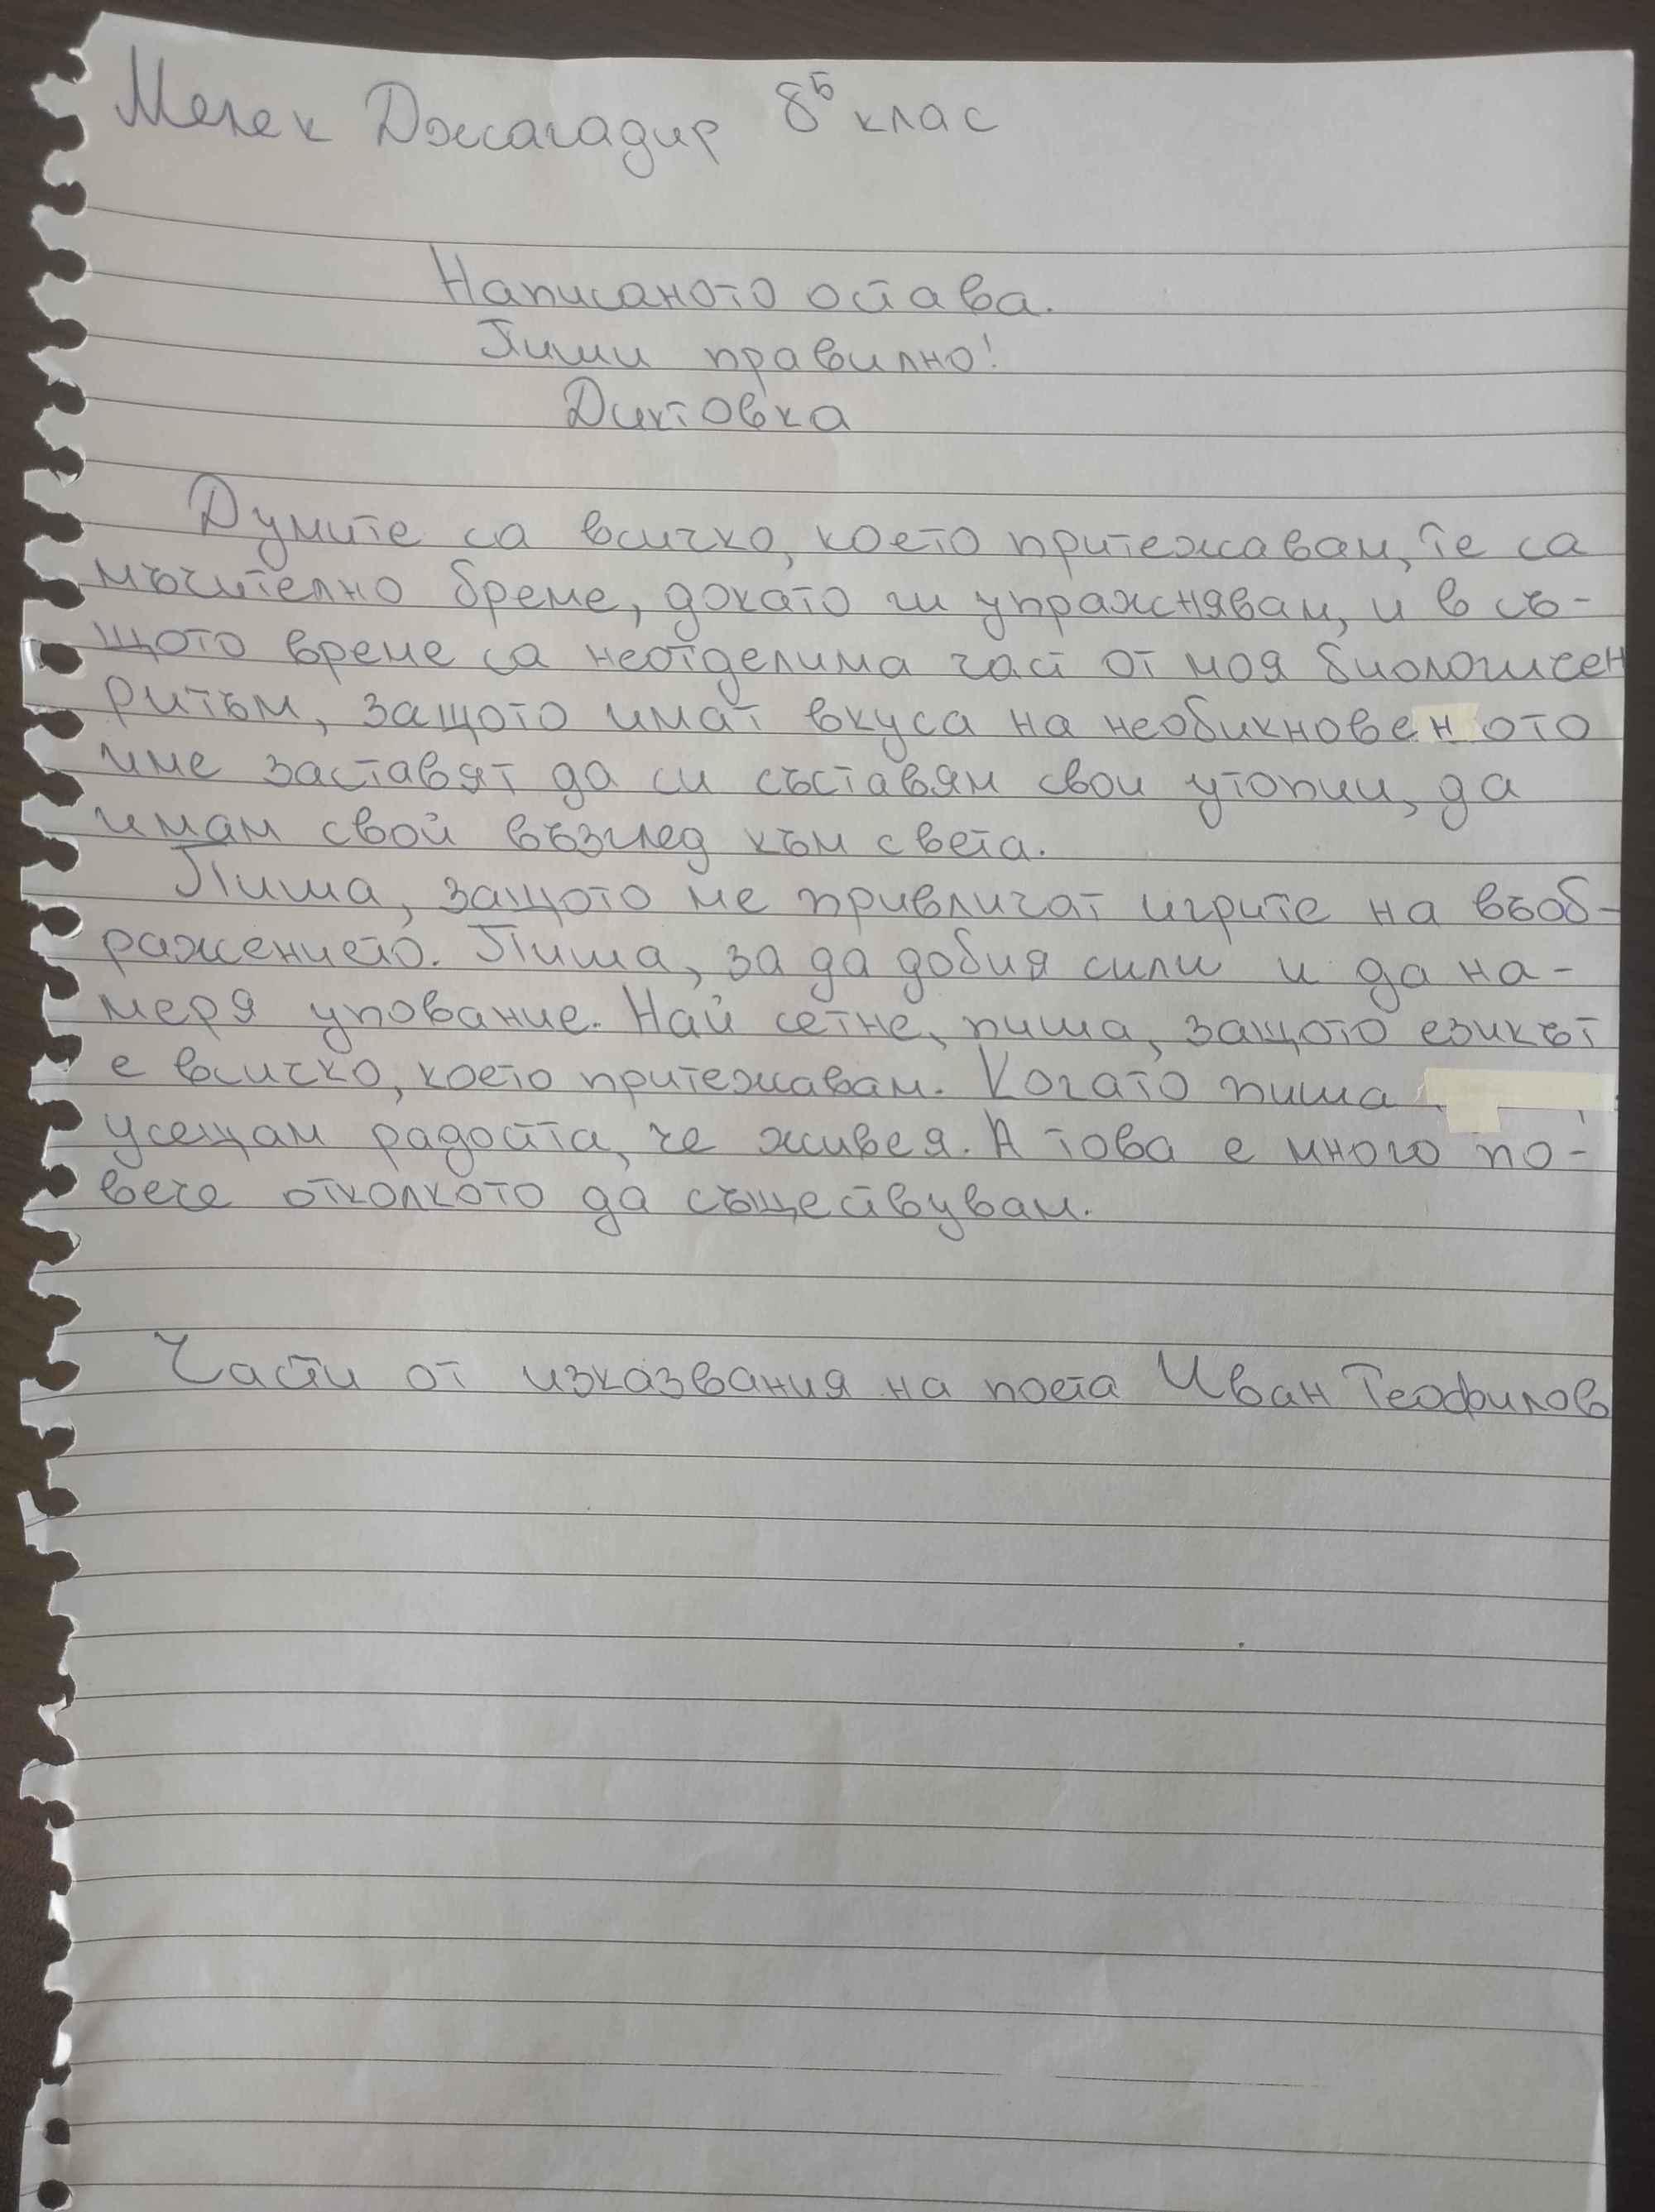 Мелек Джагадир 8Б клас
Написаното остава.
Пиши правилно!
Диктовка
Думите са всичко, което притежавам, те са
мъчително бреме, докато ги упражнявам, и в съ-
щото време са неотделима част от моя биологичен
ритъм, защото имат вкуса на необикновеното
име заставят да си съставям свои утопии, да
имам свой възглед към света.
Пиша, защото ме привличат игрите на въоб-
ражението. Пиша, за да добия сили и да на-
меря упование. Най сетне, пиша, защото езикът
е всичко, което притежавам. Когато пиша
усещам радостта, че живея. А това е много по-
вече отколкото да съществувам.
Части от изказвания на поета Иван Теофилов